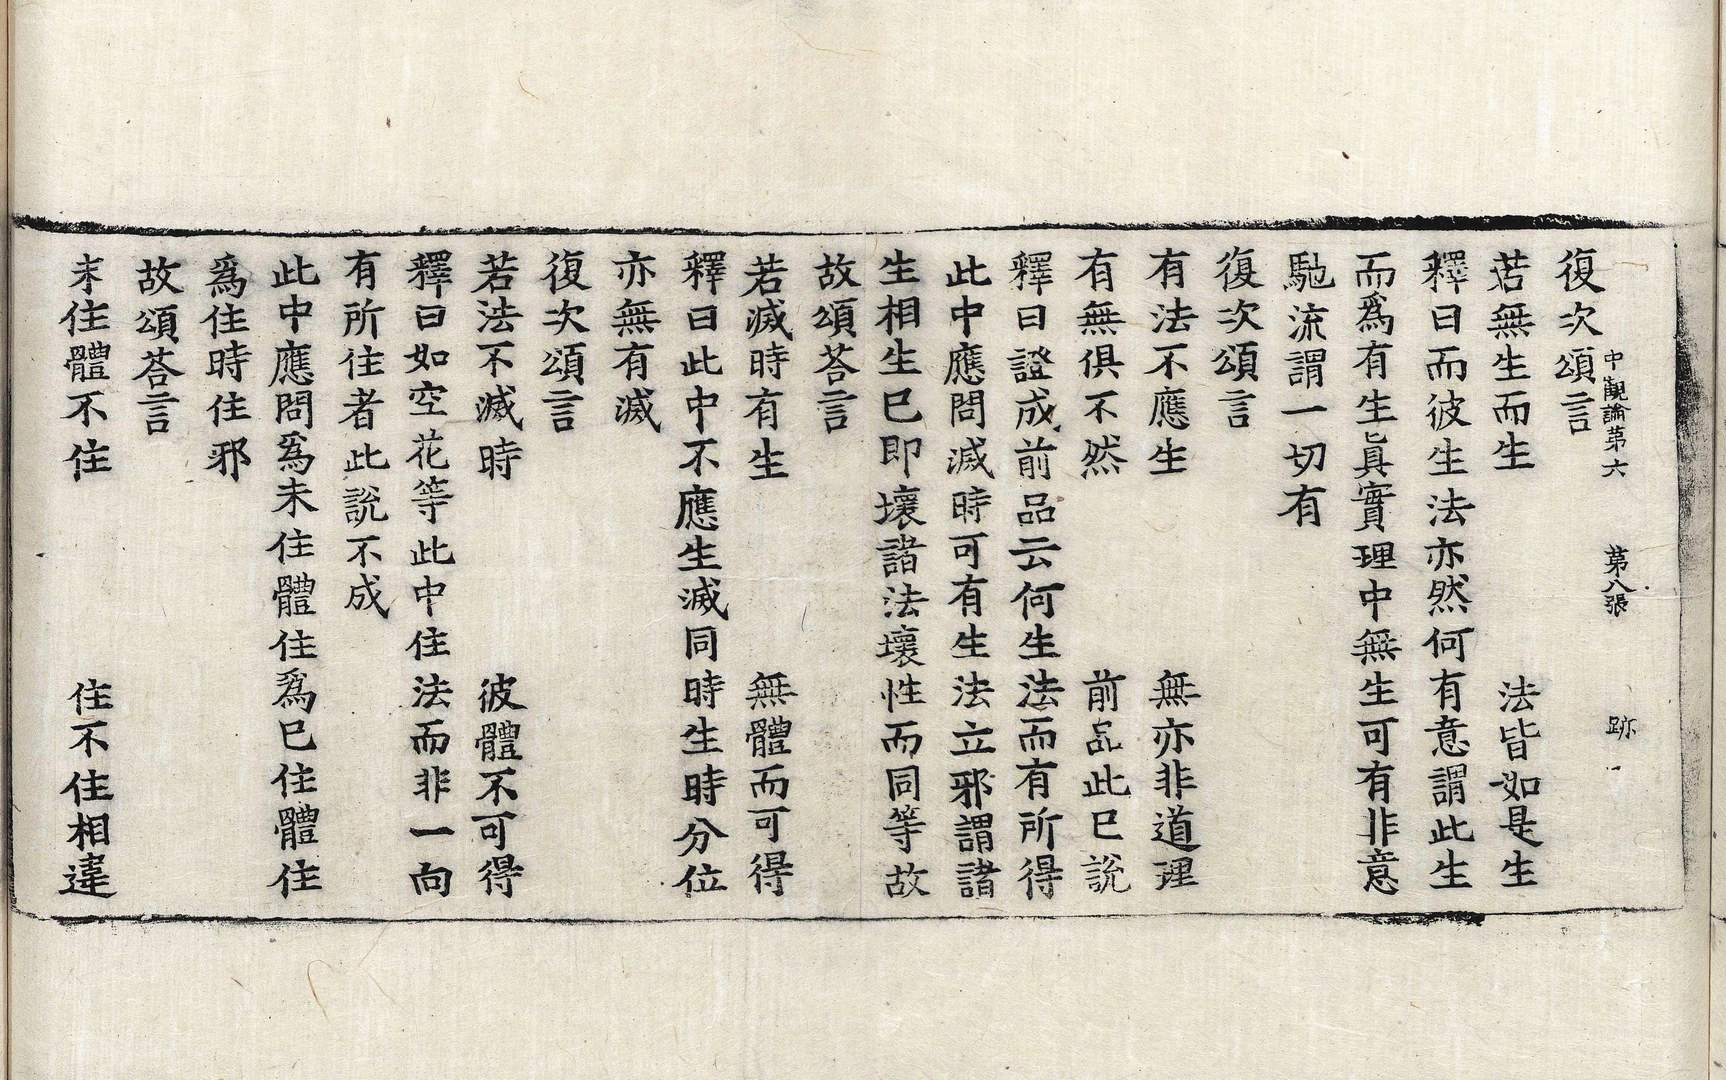 中觀論第六　第八張　跡
復次頌言
若無生而生　法皆如是生
釋曰而彼生法亦然何有意謂此生
而爲有生眞實理中無生可有非意
馳流謂一切有
復次頌言
有法不應生　無亦非道理
有無俱不然　前品此已說
釋曰證成前品云何生法而有所得
此中應問滅時可有生法立邪謂諸
生相生已即壞諸法壞性而同等故
故頌荅言
若滅時有生　無體而可得
釋曰此中不應生滅同時生時分位
亦無有滅
復次頌言
若法不滅時　彼體不可得
釋曰如空花等此中住法而非一向
有所住者此說不成
此中應問爲未住體住爲已住體住
爲住時住邪
故頌荅言
未住體不住　住不住相違